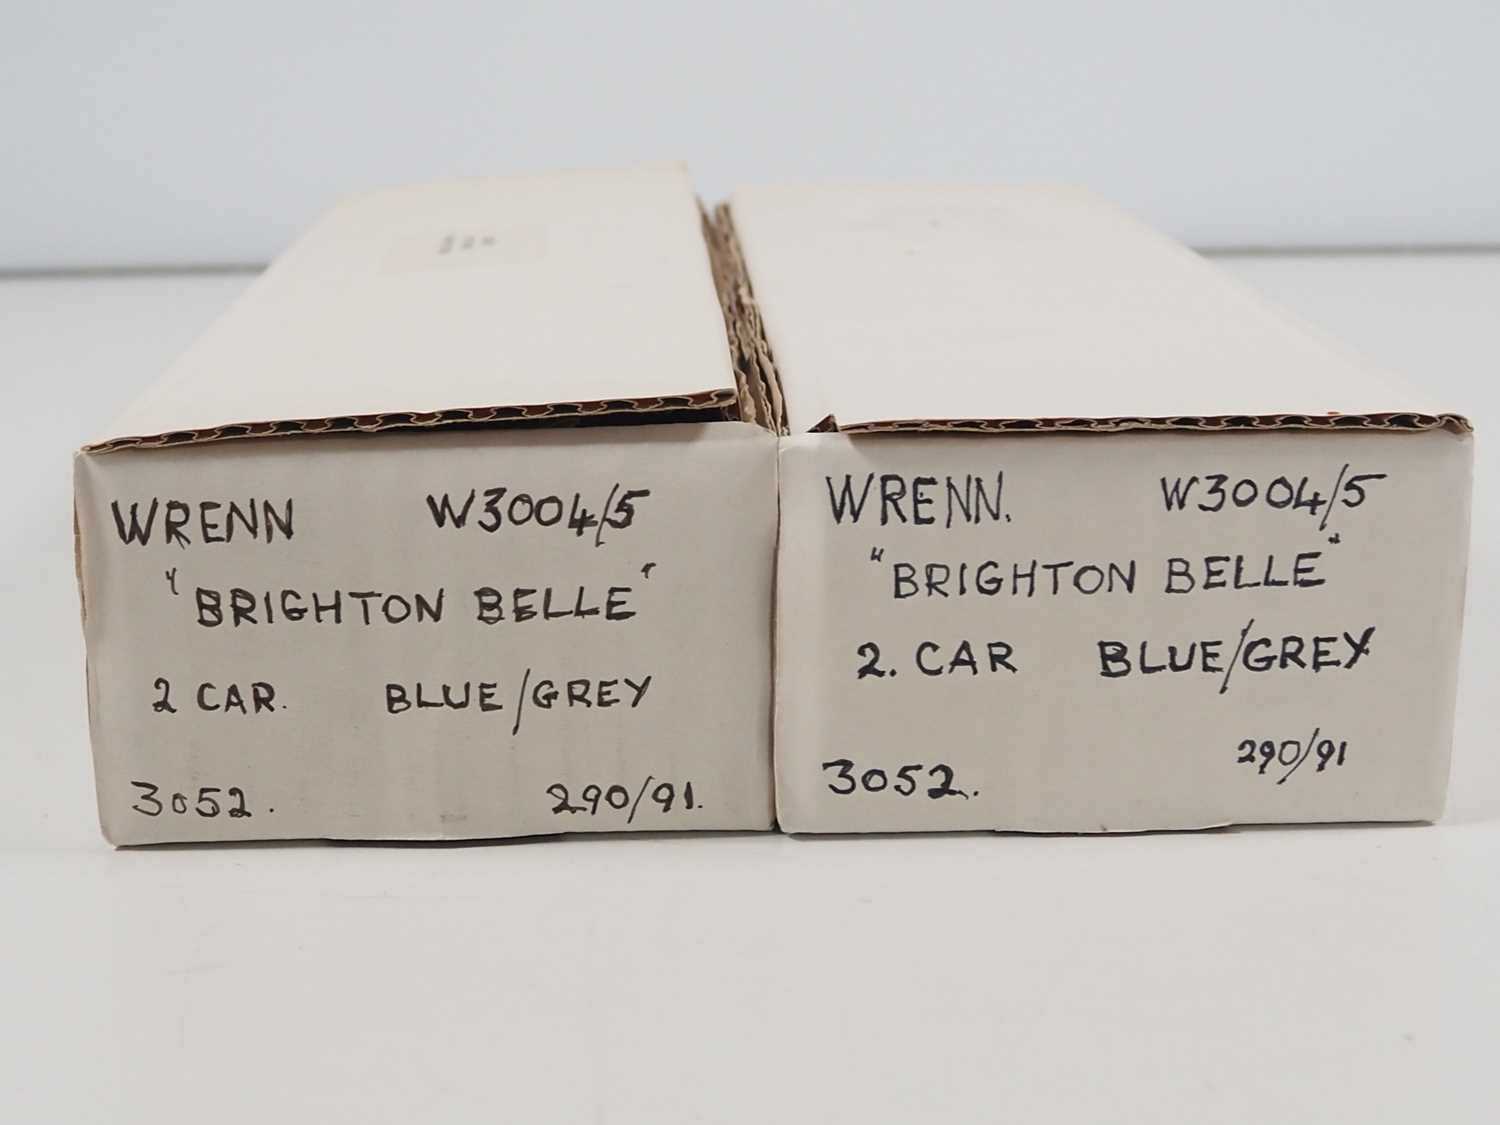 WRENN W3004/5
"BRIGHTON BELLE"
2 CAR. BLUE/GREY
3052. 290/91.
WRENN. W3004/5
"BRIGHTON BELLE"
2. CAR BLUE/GREY
3052. 290/91